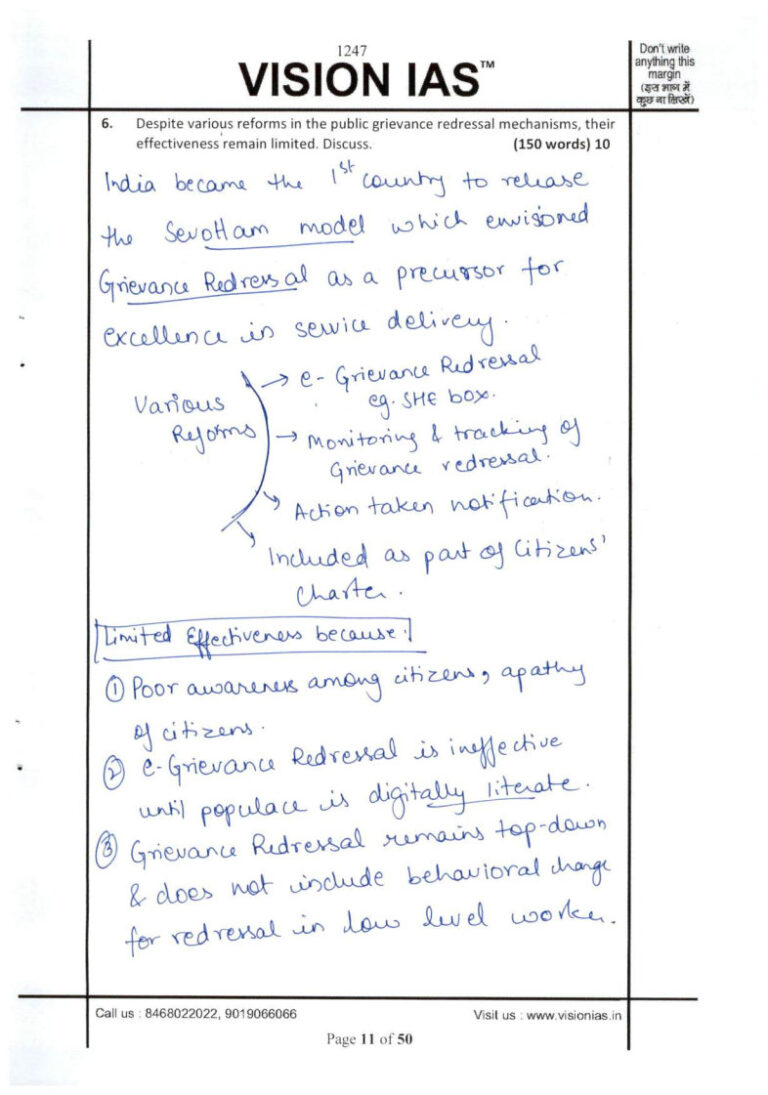 1247
VISION IAS™
Don't write
anything this
margin
(इस भाग में
कुछ ना लिखें)
6. Despite various reforms in the public grievance redressal mechanisms, their
effectiveness remain limited. Discuss. (150 words) 10
India became the 1st country to release
the Sevottam model which envisioned
Grievance Redressal as a precursor for
excellence in service delivery.
Various
Reforms
→ e-Grievance Redressal
eg. SHE box.
→ Monitoring & tracking of
Grievance redressal.
→ Action taken notification.
→ Included as part of Citizens'
Charter.
Limited Effectiveness because:
① Poor awareness among citizens, apathy
of citizens.
② e-Grievance Redressal is ineffective
until populace is digitally literate.
③ Grievance Redressal remains top-down
& does not include behavioral change
for redressal in low level worker.
Call us : 8468022022, 9019066066
Visit us : www.visionias.in
Page 11 of 50